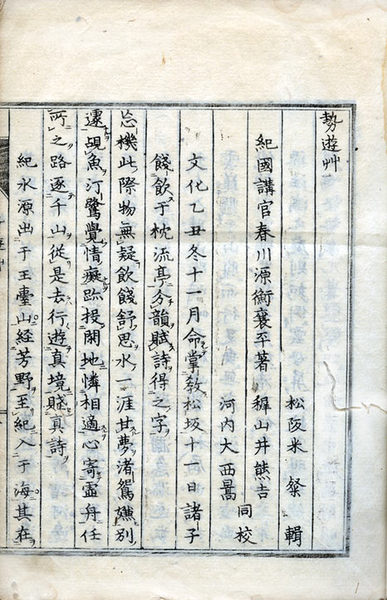 勢遊艸
松阪米粲輯
紀國講官春川源衡襄平著
穉山井熊吉
河内大西暠
同校
文化乙丑冬十一月命掌教松坂十一日諸子
餞飲于枕流亭分韻賦詩得之字
忘機此際物無疑飲餞舒思水一涯甘夢渚鴛嫌別
遽覘魚汀鷺覺情癡跡投閑地憐相適心寄虛舟任
所之路逐千山從是去行遊真境賤真詩
紀水源出于王臺山経芳野至紀入于海其在